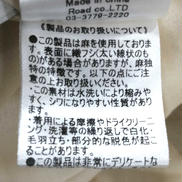 Made in China
Road co.LTD
03-3779-2220
《製品のお取り扱いについて》
●この製品は麻を使用しております。表面に織フシ太い線状のものがある場合がありますが、麻独特の特徴です。ご了
上お取り扱いください。
・この素材は水洗いにより縮みやすく、シワになりやすい性質があります。
・着用による摩擦やドライクリーニング・洗濯等の繰り返しで白化・毛羽立ち・部分的な脱色が起こることがあります。
●この製品は非常にデリケートな